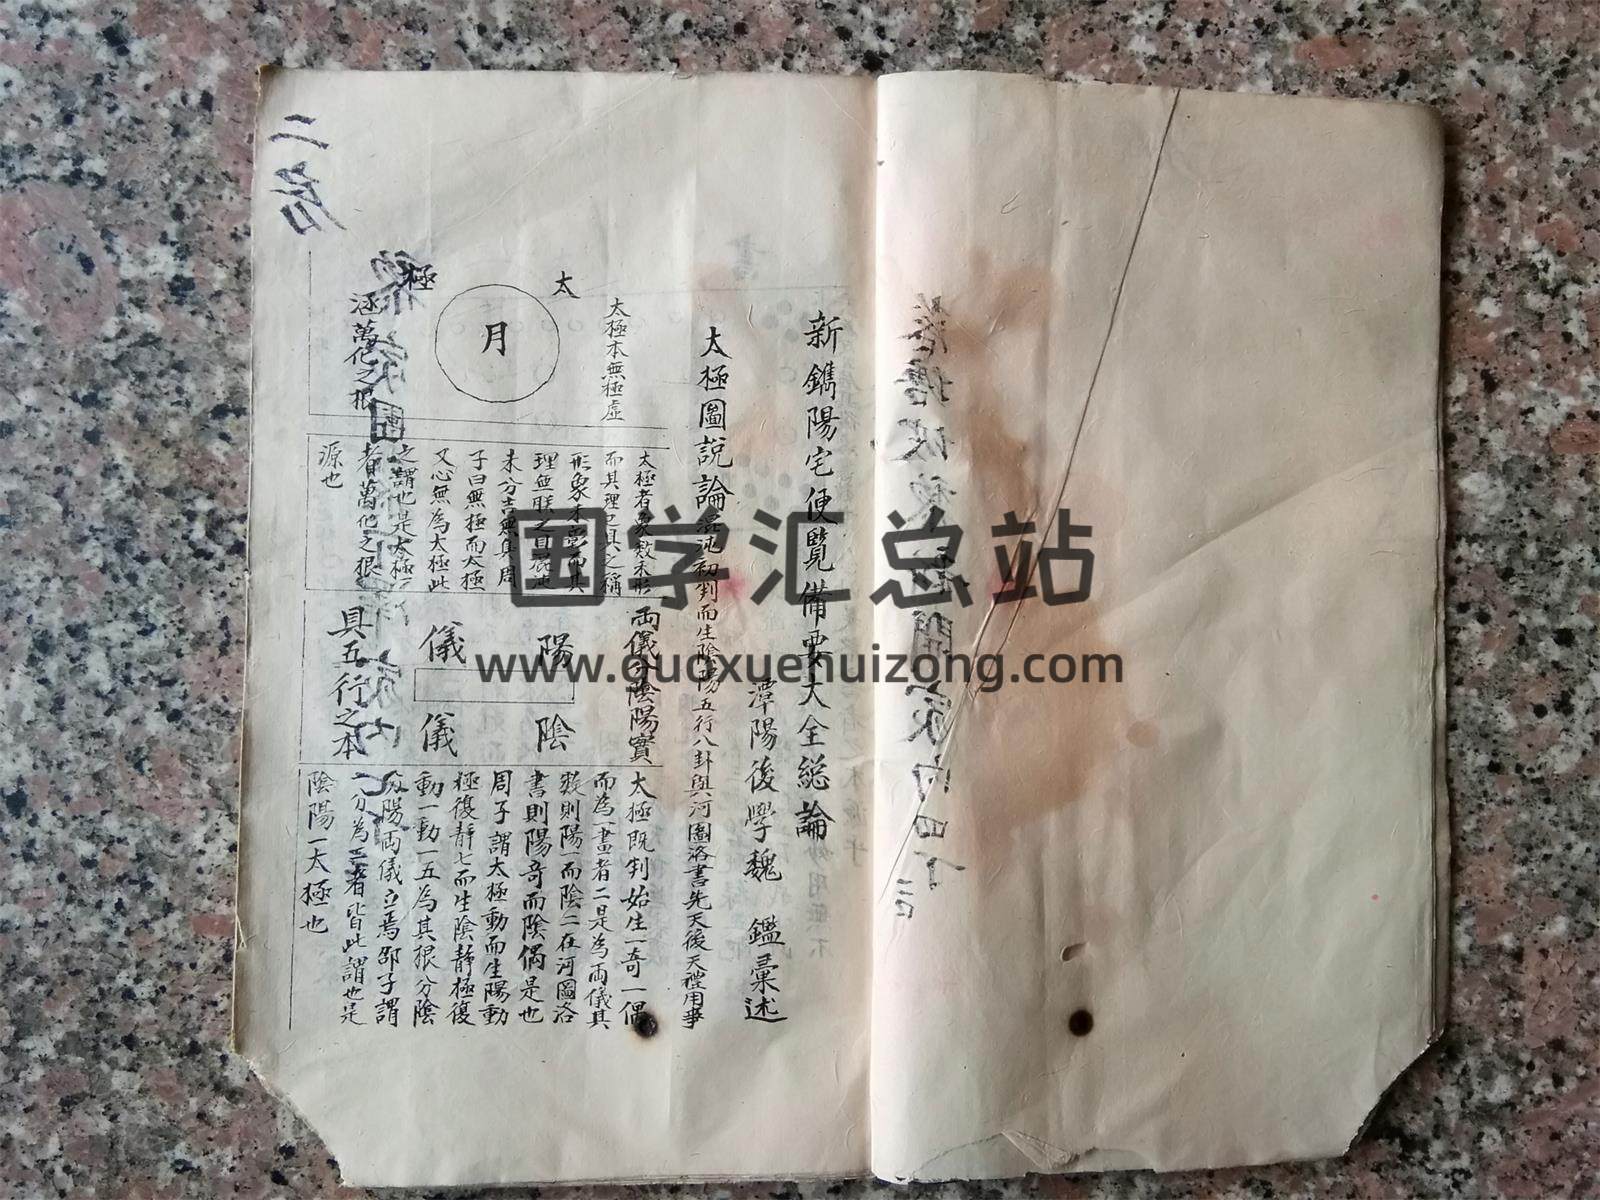 新鐫陽宅便覽備要大全総論
潭陽後學魏 鑑彙述
太極圖說論
混沌初判而生陰陽五行八卦與河圖洛書先天後天理用事
太極本無極虛
太
極
月
涵萬化之根
太極者象數未形
而其理已具之稱
形象未彰而其
理無朕之目
子曰無極而太極
又心無為太極此
之謂也是太極
者萬化之根
源也
両儀 陰陽實
陽
儀
陰
儀
具五行之本
太極既判始生一奇一偶
而為一畫者二是為両儀其
数則陽一而陰二在河圖洛
書則陽奇而陰偶是也
周子謂太極動而生陽動
極復静 而生陰静極復
動一動一 為其根分陰
分陽両儀立焉邵子謂
一分為二者皆此謂也是
陰陽一太極也
国学汇总站
www.guoxuehuizong.com